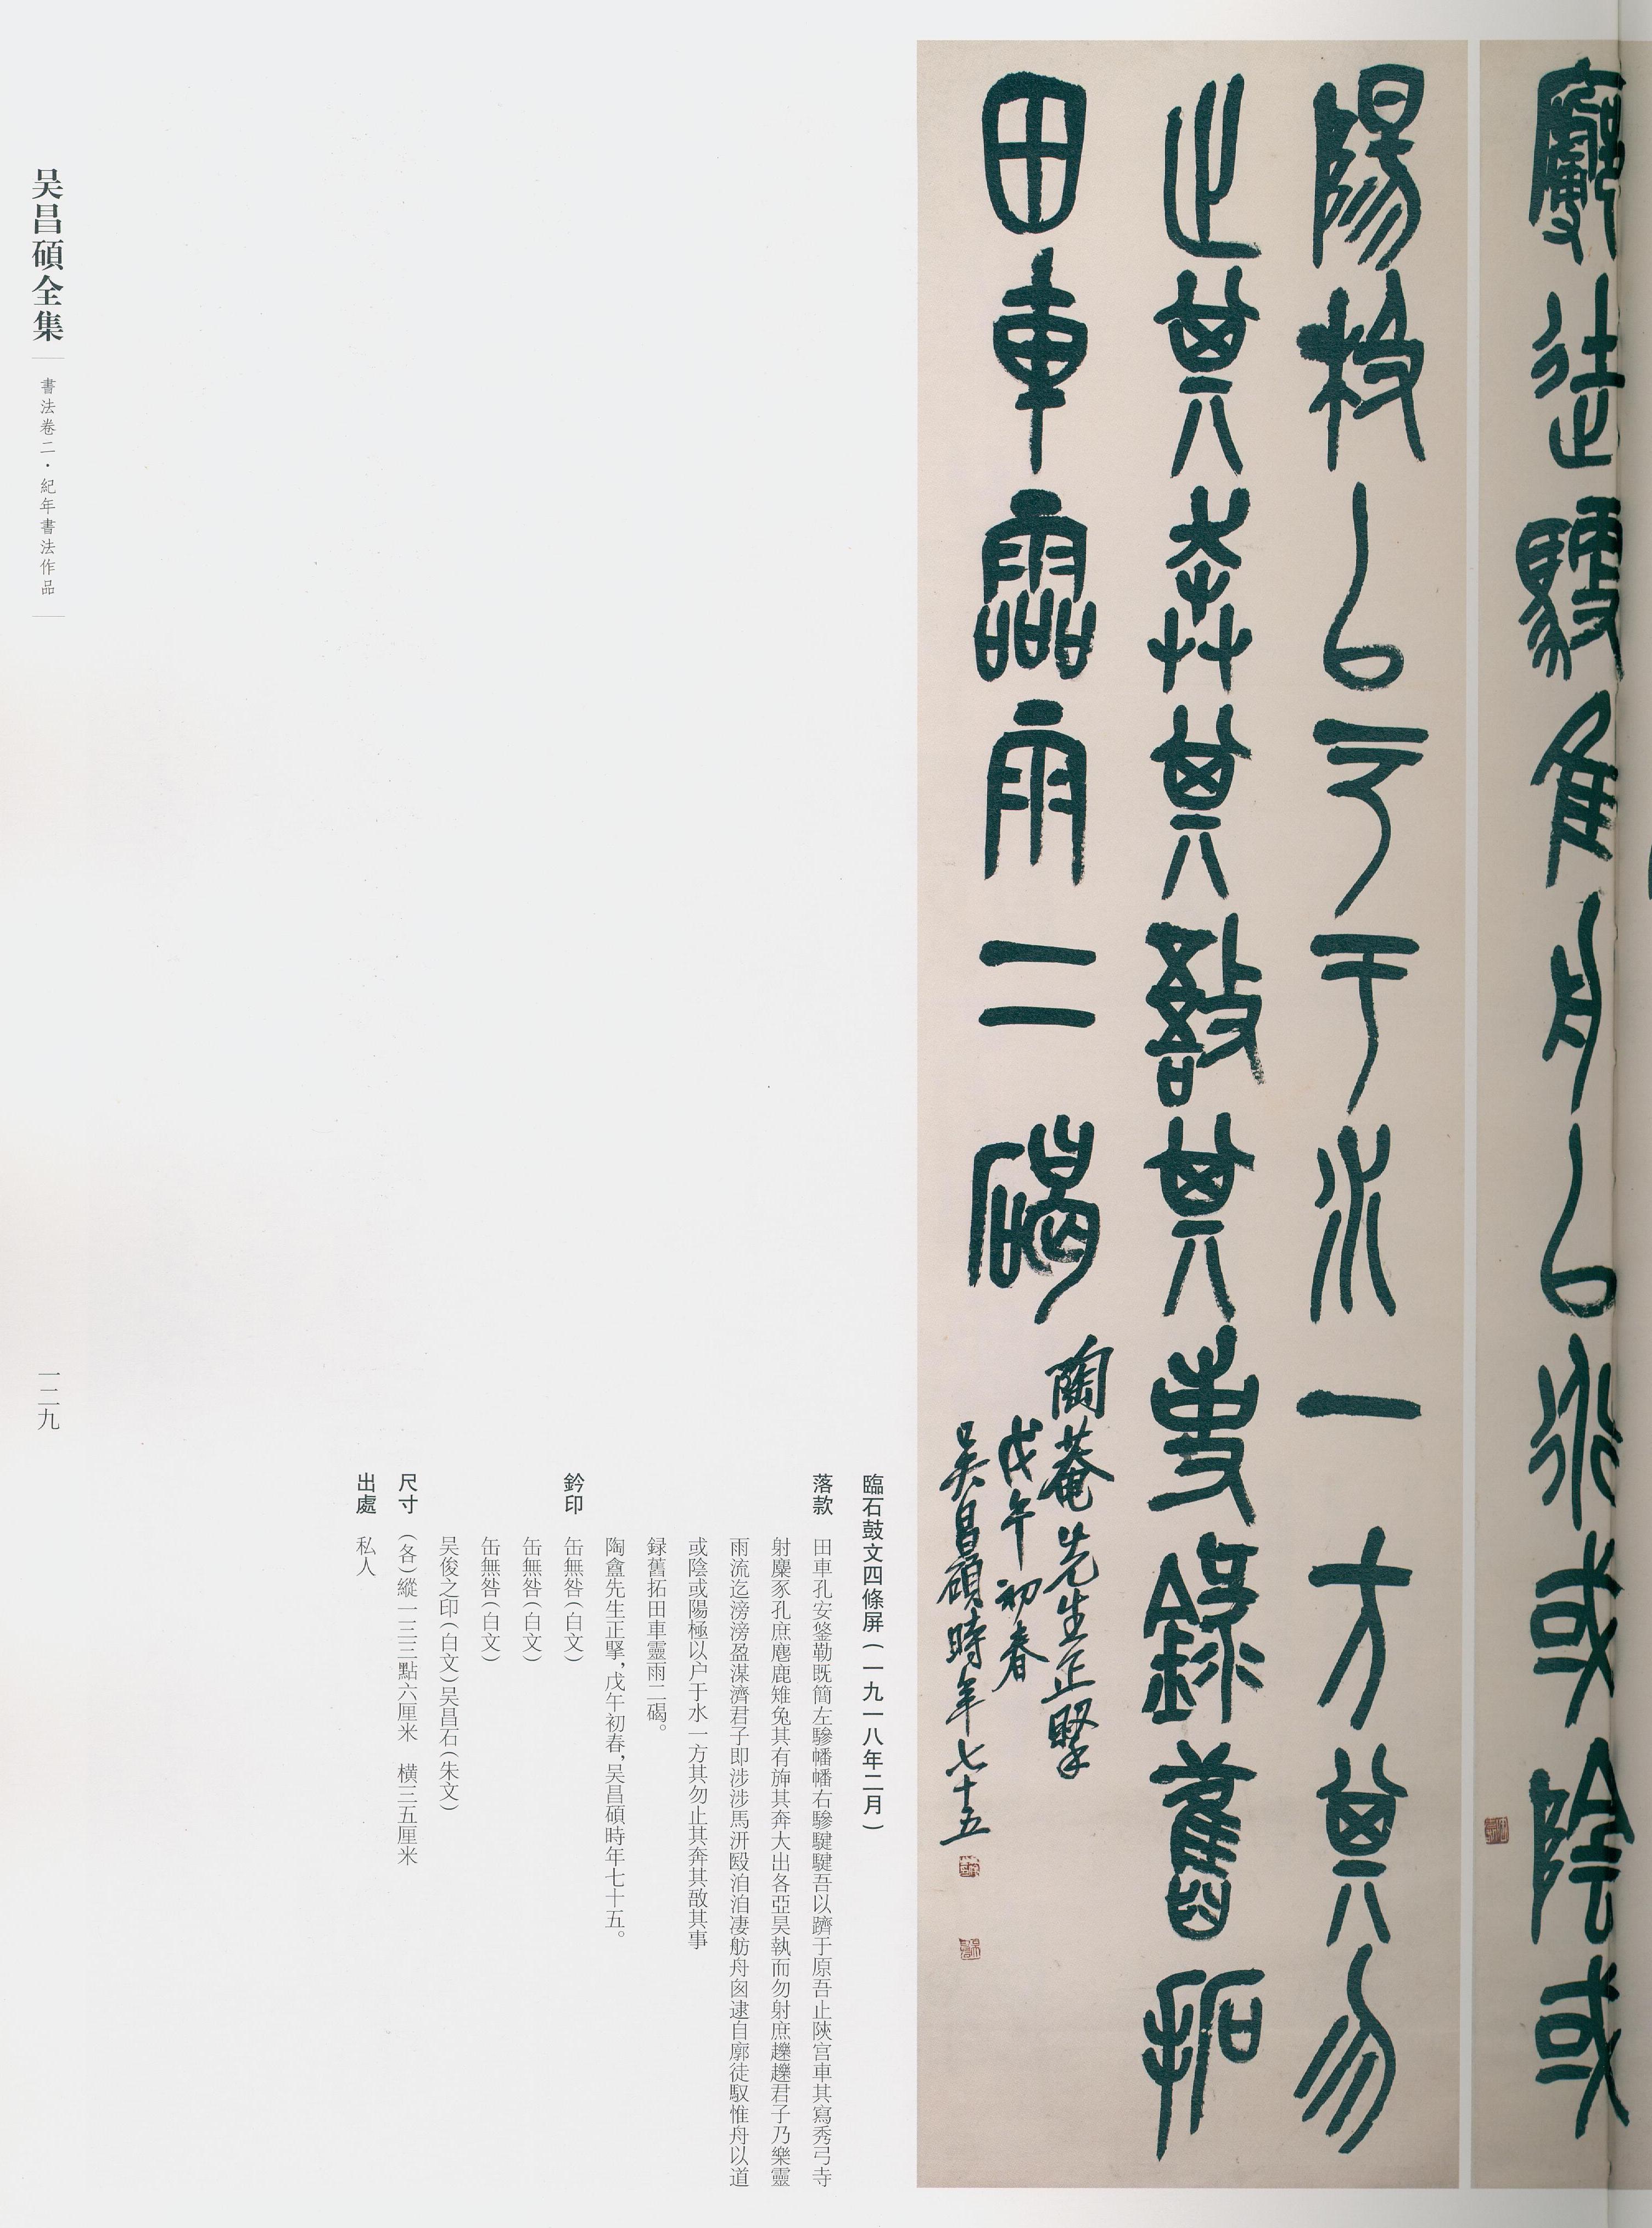 廓徒馭隹舟以衍或陰或
陽极以戶于水一方其勿
止其奔其敔其事錄舊拓
田車靈雨二碣
陶菴先生正擥
戊午初春
吳昌碩時年七十五
臨石鼓文四條屏（一九一八年二月）
落款 田車孔安鋚勒既簡左驂幡幡右驂騝騝吾以隮于原吾止陝宫車其寫秀弓寺
射麋豕孔庶麀鹿雉兔其有旆其奔大出各亞昊執而勿射庶趯趯君子乃樂靈
雨流迄滂滂盈渫濟君子即涉涉馬汧殹洎洎凄舫舟囪逮自廓徒馭惟舟以道
或陰或陽極以户于水一方其勿止其奔其敔其事
録舊拓田車靈雨二碣。
陶盦先生正擥，戊午初春，吴昌碩時年七十五。
鈐印 缶無咎（白文）
缶無咎（白文）
缶無咎（白文）
吴俊之印（白文）吴昌石（朱文）
尺寸 （各）縱一三三點六厘米 横三五厘米
出處 私人
吴昌碩全集
書法卷二・紀年書法作品
一二九